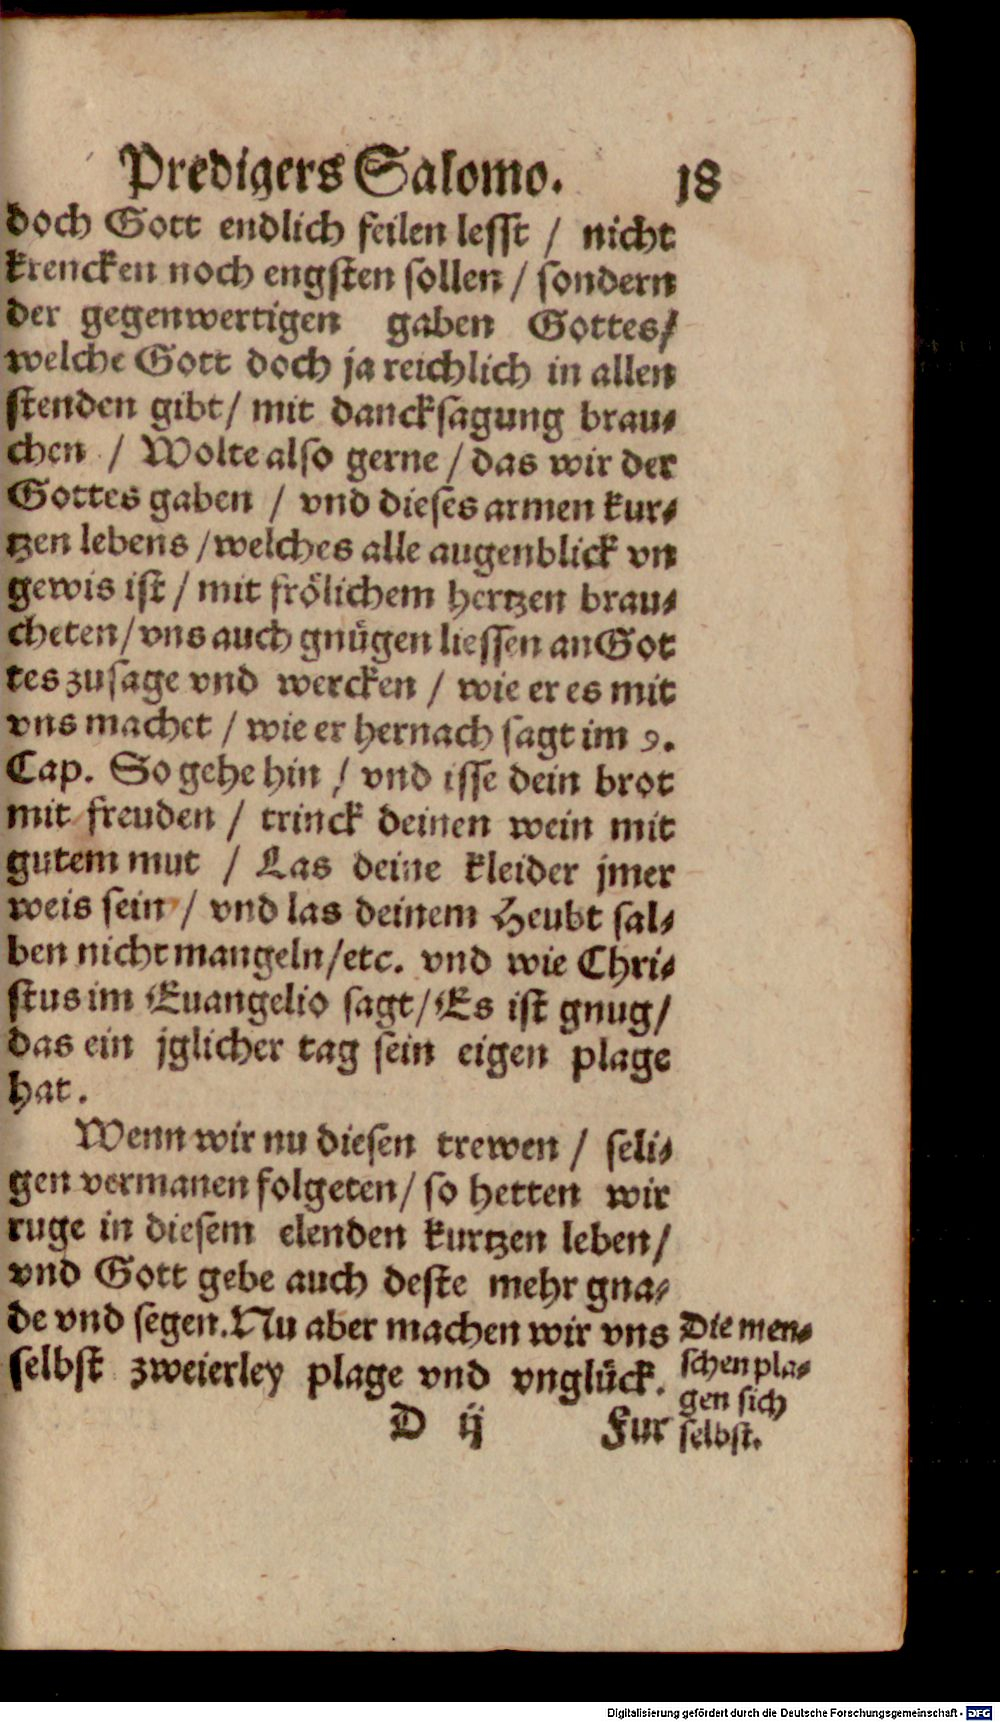 Predigers Salomo. 18
doch Gott endlich feilen lesst / nicht
krencken noch engsten sollen / sondern
der gegenwertigen gaben Gottes/
welche Gott doch ja reichlich in allen
stenden gibt/ mit dancksagung brau⸗
chen / Wolte also gerne / das wir der
Gottes gaben / vnd dieses armen kur⸗
tzen lebens /welches alle augenblick vn
gewis ist / mit frölichem hertzen brau⸗
cheten/ vns auch gnügen liessen an Got
tes zusage vnd wercken / wie er es mit
vns machet / wie er hernach sagt im 9.
Cap. So gehe hin / vnd isse dein brot
mit freuden / trinck deinen wein mit
gutem mut / Las deine kleider jmer
weis sein / vnd las deinem Heubt sal⸗
ben nicht mangeln/etc. vnd wie Chri⸗
stus im Euangelio sagt/ Es ist gnug/
das ein jglicher tag sein eigen plage
hat.
Wenn wir nu diesen trewen / seli⸗
gen vermanen folgeten/ so hetten wir
ruge in diesem elenden kurtzen leben/
vnd Gott gebe auch deste mehr gna⸗
de vnd segen. Nu aber machen wir vns
selbst zweierley plage vnd vnglück.
Die men⸗
schen pla⸗
gen sich
selbst.
D ij Fur
Digitalisierung gefördert durch die Deutsche Forschungsgemeinschaft - DFG